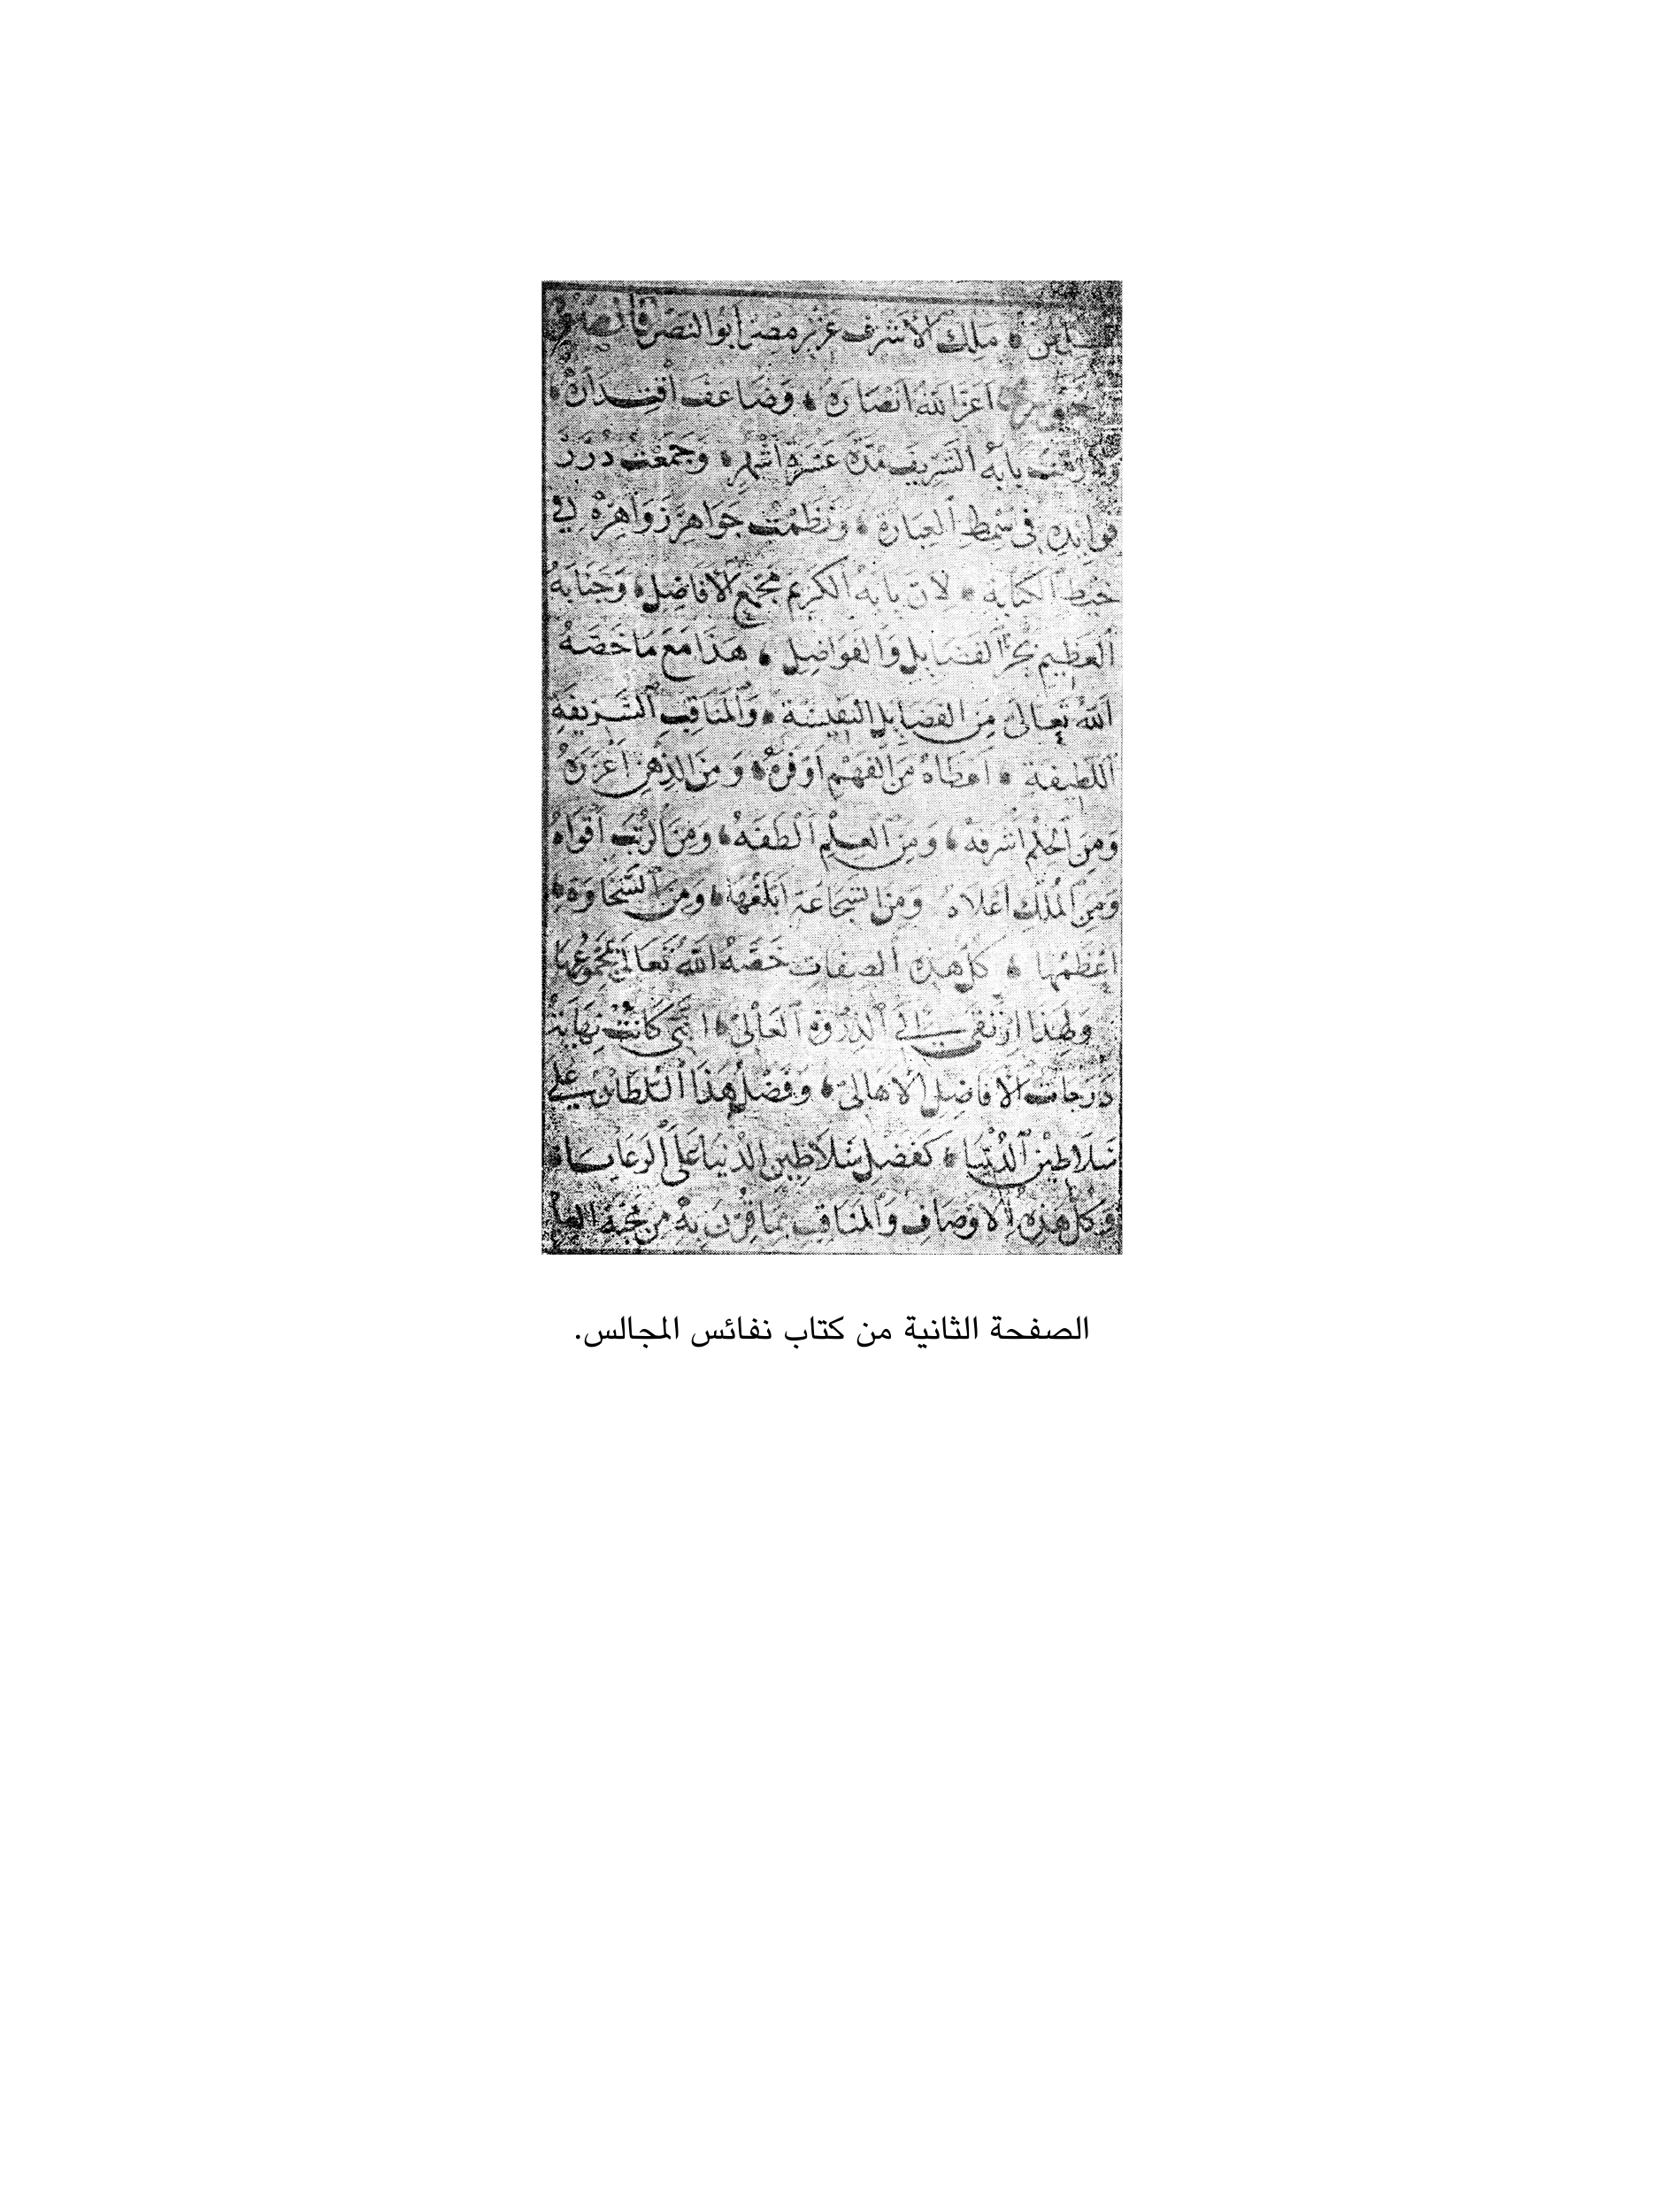 مَلِك الأشرف عزيز مصر أبو النصر قانصوه
اَعَزَّ اللهُ اَنصَارَهُ وَضَاعَفَ اقتِدَارَهُ
بابه الشريف مدة عشرة اشهر وَجَمَعْتُ دُرَرَ
فوايده في سِمطِ العبارة وَنَظَمْتُ جَوَاهِرَ زَوَاهِرَهُ في
خيط الكتابة لِانَّ بابه الكريم مجمع الافاضل وَجَنَابَهُ
العظيم بحر الفضايل والفواضل هَذَا مَعَ مَا خَصَّهُ
الله تعالى من الفضايل النفيسة والمناقب الشريفة
اللطيفة اعطاه من الفهم اوفره وَمِنَ الذِهنِ اغزرهُ
وَمِنَ الحِلْم اشرفه وَمِنَ العِلْمِ اَلْطَفَهُ وَمِنَ الرُتَب اقواه
وَمِنَ المُلْكِ اَعْلَاهُ وَمِنَ الشجَاعَة ابلغها وَمِنَ السَّخَاوَةِ
اعظمها كل هذه الصفات خَصَّهُ الله تَعَالى بمجموعها
وَلِهَذَا ارْتقى الى الذروة العَالى التى كَانَتْ نِهَايَة
دَرَجات الافاضل الاهالى وَفَضْلُ هَذَا السُلطان على
سَلَاطين الدُنْيَا كَفَضل سَلَاطين الدنيا عَلَى الرَعَايا
وَكل هذه الاوصاف وَالمَنَاقِب بما قُرِنَ به من محبة
الصفحة الثانية من كتاب نفائس المجالس.